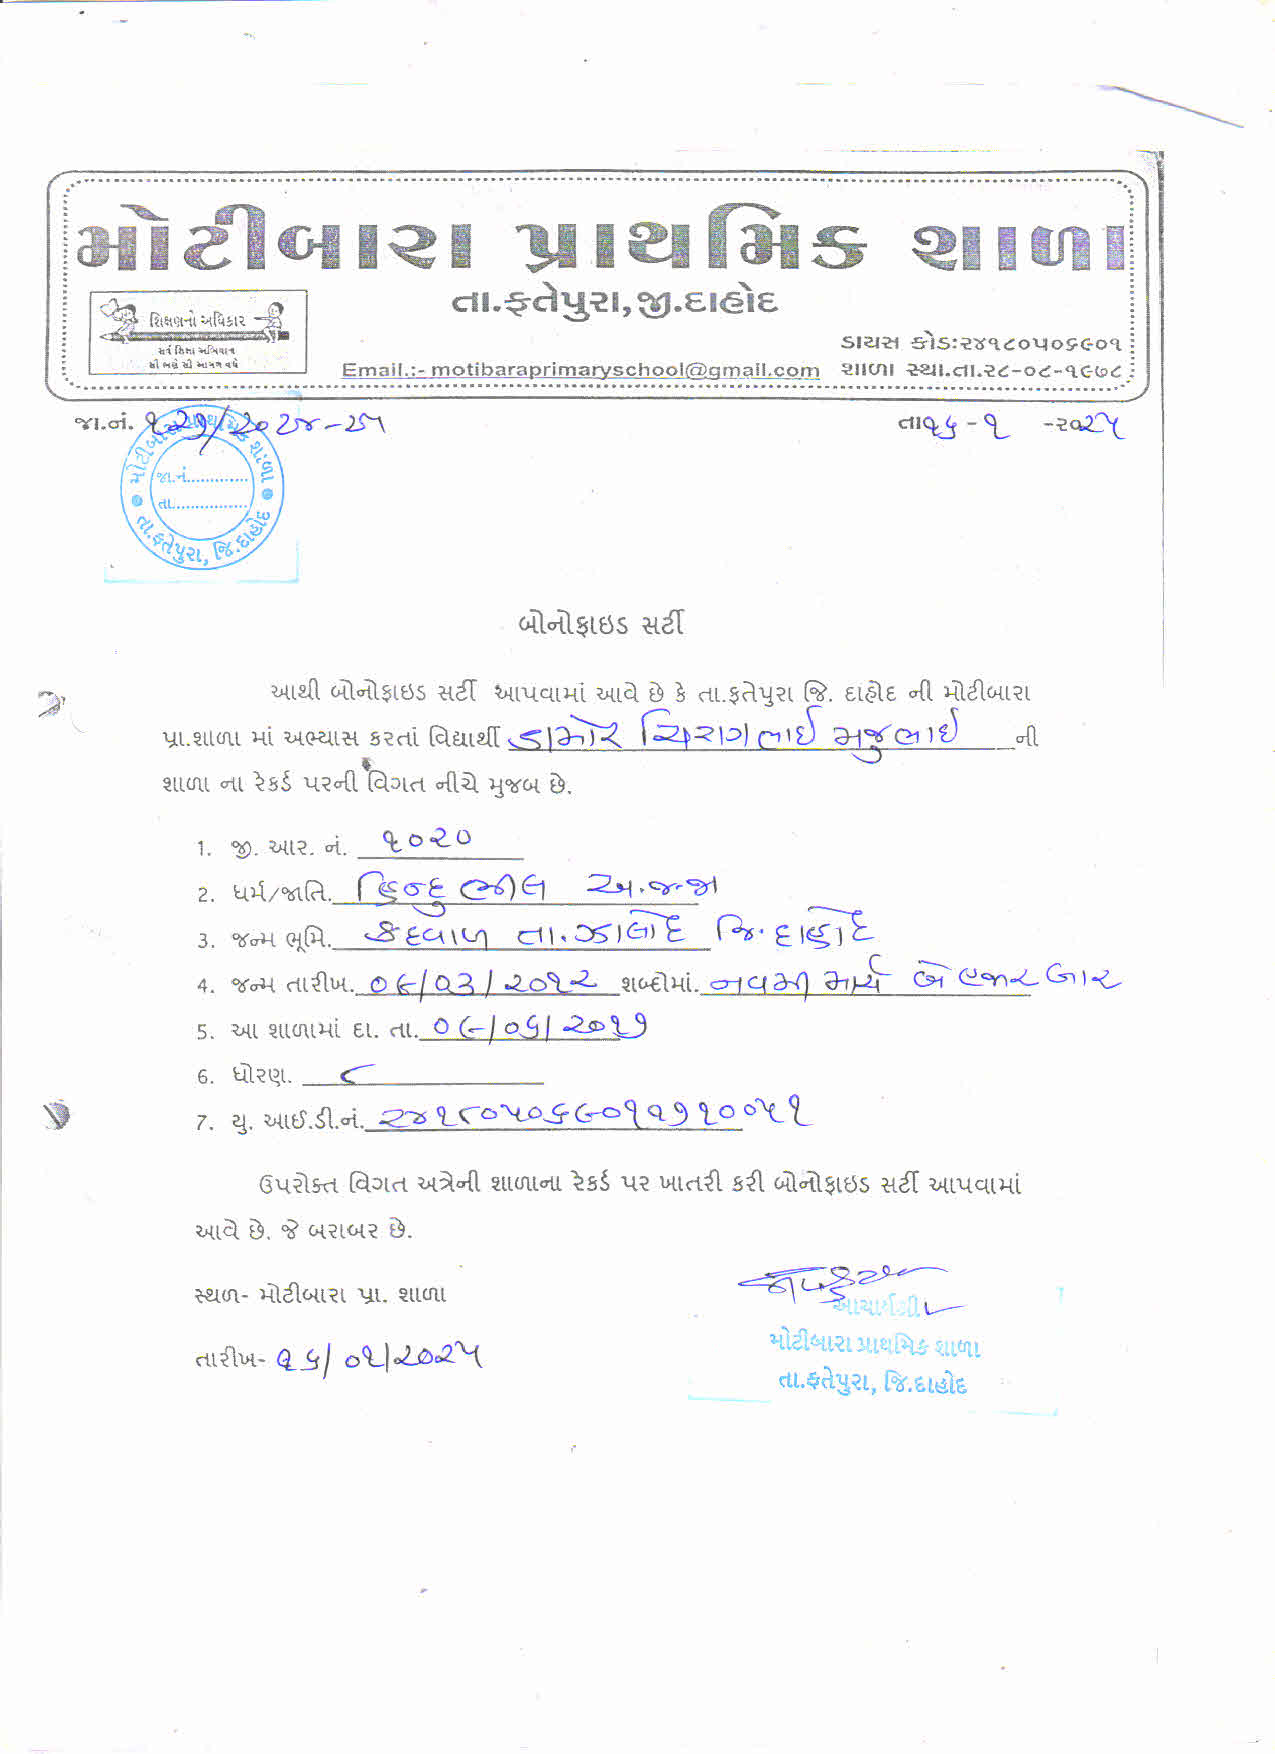 મોટીબારા પ્રાથમિક શાળા
તા.ફતેપુરા,જી.દાહોદ
શિક્ષણનો અધિકાર
સર્વ શિક્ષા અભિયાન
સૌ ભણે સૌ આગળ વધે
ડાયસ કોડ:૨૪૧૮૦૫૦૬૯૦૧
Email.:- motibaraprimaryschool@gmail.com શાળા સ્થા.તા.૨૮-૦૮-૧૯૭૮
જા.નં. ૧૨૭/૨૦૨૪-૨૫ તા૧૬-૧ -૨૦૨૫
મોટીબારા પ્રાથમિક શાળા
જા.નં..............
તા................
તા.ફતેપુરા, જિ.દાહોદ
બોનોફાઇડ સર્ટી
આથી બોનોફાઇડ સર્ટી આપવામાં આવે છે કે તા.ફતેપુરા જિ. દાહોદ ની મોટીબારા
પ્રા.શાળા માં અભ્યાસ કરતાં વિદ્યાર્થી ડામોર ચિરાગભાઈ મજુભાઈ ની
શાળા ના રેકર્ડ પરની વિગત નીચે મુજબ છે.
1. જી. આર. નં. ૧૦૨૦
2. ધર્મ/જાતિ. હિન્દુ ભીલ અ.જ.જા
3. જન્મ ભૂમિ. કદવાળ તા.ઝાલોદ જિ.દાહોદ
4. જન્મ તારીખ. ૦૯/૦૩/૨૦૧૨ શબ્દોમાં. નવમી માર્ચ બે હજાર બાર
5. આ શાળામાં દા. તા. ૦૯/૦૬/૨૦૧૭
6. ધોરણ. ૮
7. યુ. આઈ.ડી.નં. ૨૪૧૮૦૫૦૬૯૦૧૧૭૧૦૦૫૧
ઉપરોક્ત વિગત અત્રેની શાળાના રેકર્ડ પર ખાતરી કરી બોનોફાઇડ સર્ટી આપવામાં
આવે છે. જે બરાબર છે.
સ્થળ- મોટીબારા પ્રા. શાળા
આચાર્યશ્રી
મોટીબારા પ્રાથમિક શાળા
તા.ફતેપુરા, જિ.દાહોદ
તારીખ- ૧૬/૦૧/૨૦૨૫